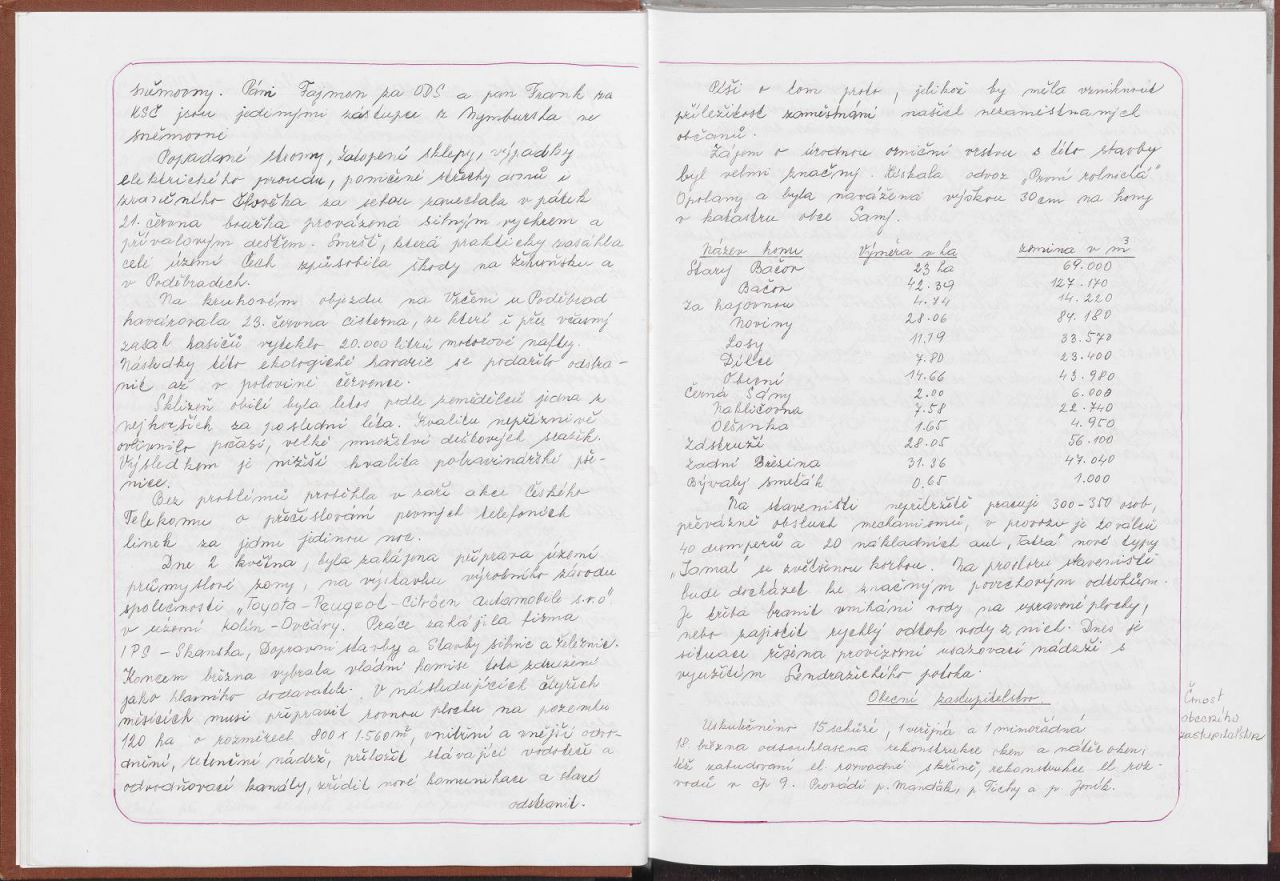 sněmovny. Páni Fajmon za ODS a pan Frank za
KSČ jsou jedinými zástupci z Nymburska ve
sněmovně
Popadané stromy, zatopené sklepy, výpadky
elektrického proudu, poničené střechy domů i
zraněného člověka za sebou zanechala v pátek
21. června bouřka provázená silným vychrem a
přívalovým deštěm. Smršť, která prakticky zasáhla
celé území Čech způsobila škody na Žehuňsku a
v Poděbradech.
Na kruhovém objezdu na Vrčeni u Poděbrad
havarovala 23. června cisterna, ze které i přes včasný
zásah hasičů vyteklo 20.000 litrů motorové nafty.
Následky této ekologické havarie se podařilo odstra-
nit až v polovině července.
Sklizeň obilí byla letos podle zemědělců jedna z
nejhorších za poslední léta. Kvalitu nepříznivě
ovlivnilo počasí, velké množství dešťových srážek.
Výsledkem je nižší kvalita potravinářské pše-
nice.
Bez problémů proběhla v září akce Českého
Telekomu o přečíslování pevných telefoních
linek za jednu jedinou noc.
Dne 2 května, byla zahájena příprava území
průmyslové zony, na výstavbu výrobního závodu
společnosti „Toyota-Peugeot-Citröen automobile s.r.o"
v území Kolín-Ovčáry. Práce zahájila firma
IPS-Skanska, Dopravní stavby a Stavby silnic a železnic.
Koncem března vybrala vládní komise toto sdružení
jako hlavního dodavatele. V následujících čtyřech
měsících musí připravit rovnou plochu na pozemku
120 ha o rozměrech 800 x 1.560 m², vnitřní a vnější odvo-
dnění, retenční nádrž, přeložit stávající vodoteče a
odvodňovací kanály, zřídit nové komunikace a staré
odstranit.
Píši o tom proto, jelikož by měla vzniknout
příležitost zaměstnání našich nezaměstnaných
občanů.
Zájem o úrodnou orniční vrstvu z této stavby
byl velmi značný. Získala odvoz „První rolnická"
Opolany a byla navážena výškou 30cm na hony
v katastru obce Sány.
Název honu Výměra v ha zemina v m³
Starý Bačov 23 ha 69.000
Bačov 42.39 127.170
Za hajovnou 4.74 14.220
Noviny 28.06 84.180
Losy 11.19 33.570
Dílce 7.80 23.400
Obecní 14.66 43.980
Černá Sány 2.00 6.000
Nahličovna 7.58 22.740
Olšinka 1.65 4.950
Zdstruží 28.05 56.100
Zadní Březina 31.36 47.040
Bývalý smeták 0.65 1.000
Na staveništi nepřitržitě pracuje 300-350 osob,
převážně obsluh mechanismů, v provozu je 20 válců
40 dumperů a 20 nákladních aut „Tatra" nové typy
„Jamal" se zvětšenou korbou. Na prostoru staveniště
bude docházet ke značným povrchovým odtokům.
Je třeba bránit vnikání vody na upravené plochy,
nebo zajistit rychlý odtok vody z nich. Dnes je
situace řešena provizorní usazovací nádrží s
využitím Sendražického potoka.
Obecní zastupitelstvo.
Uskutečněno 15 schůzí, 1 veřejná a 1 mimořádná
18. března odsouhlasena rekonstrukce oken a nátěr oken,
též zabudování el. rozvodné skříně, rekonstrukce el. roz-
vodů v čp 9. Provádí p. Mandák, p. Tichý a p. Jeník.
Činost
obecního
zastupitelstva